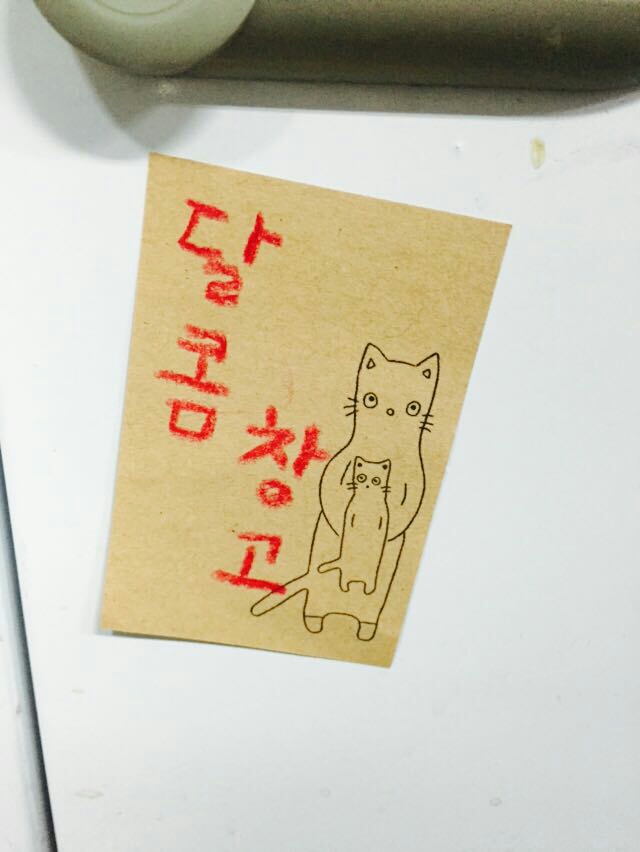 달콤
창고